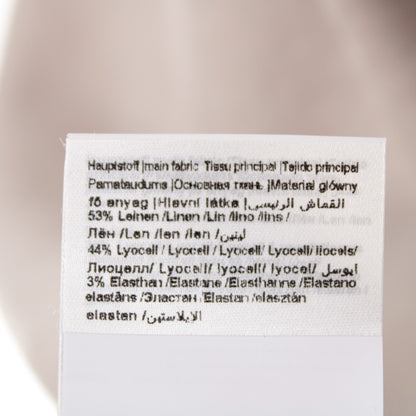 Hauptstoff |main fabric Tissu principal |Tejido principal
Pamataudums |Основная ткань |Material główny
fő anyag |Hlavní látka |القماش الرئيسي
53% Leinen /Linen /Lin /lino /lins /
Лён /Len /len /len / لينين/
44% Lyocell / Lyocell / Lyocell/ Lyocell/ liocels/
Лиоцелл/ Lyocell/ lyocell/ lyocel/
3% Elasthan /Elastane /Elasthanne /Elastano
elastāns /Эластан /Elastan /elasztán
elastan /الإيلاستين/